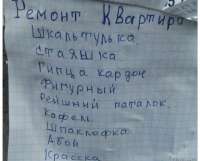 Ремонт Квартира
Шкальтулька
Стаяшка
Гипца кардон
Фигурный
Реишний паталок.
Кафел.
Шпаклофка
Абой
Красска